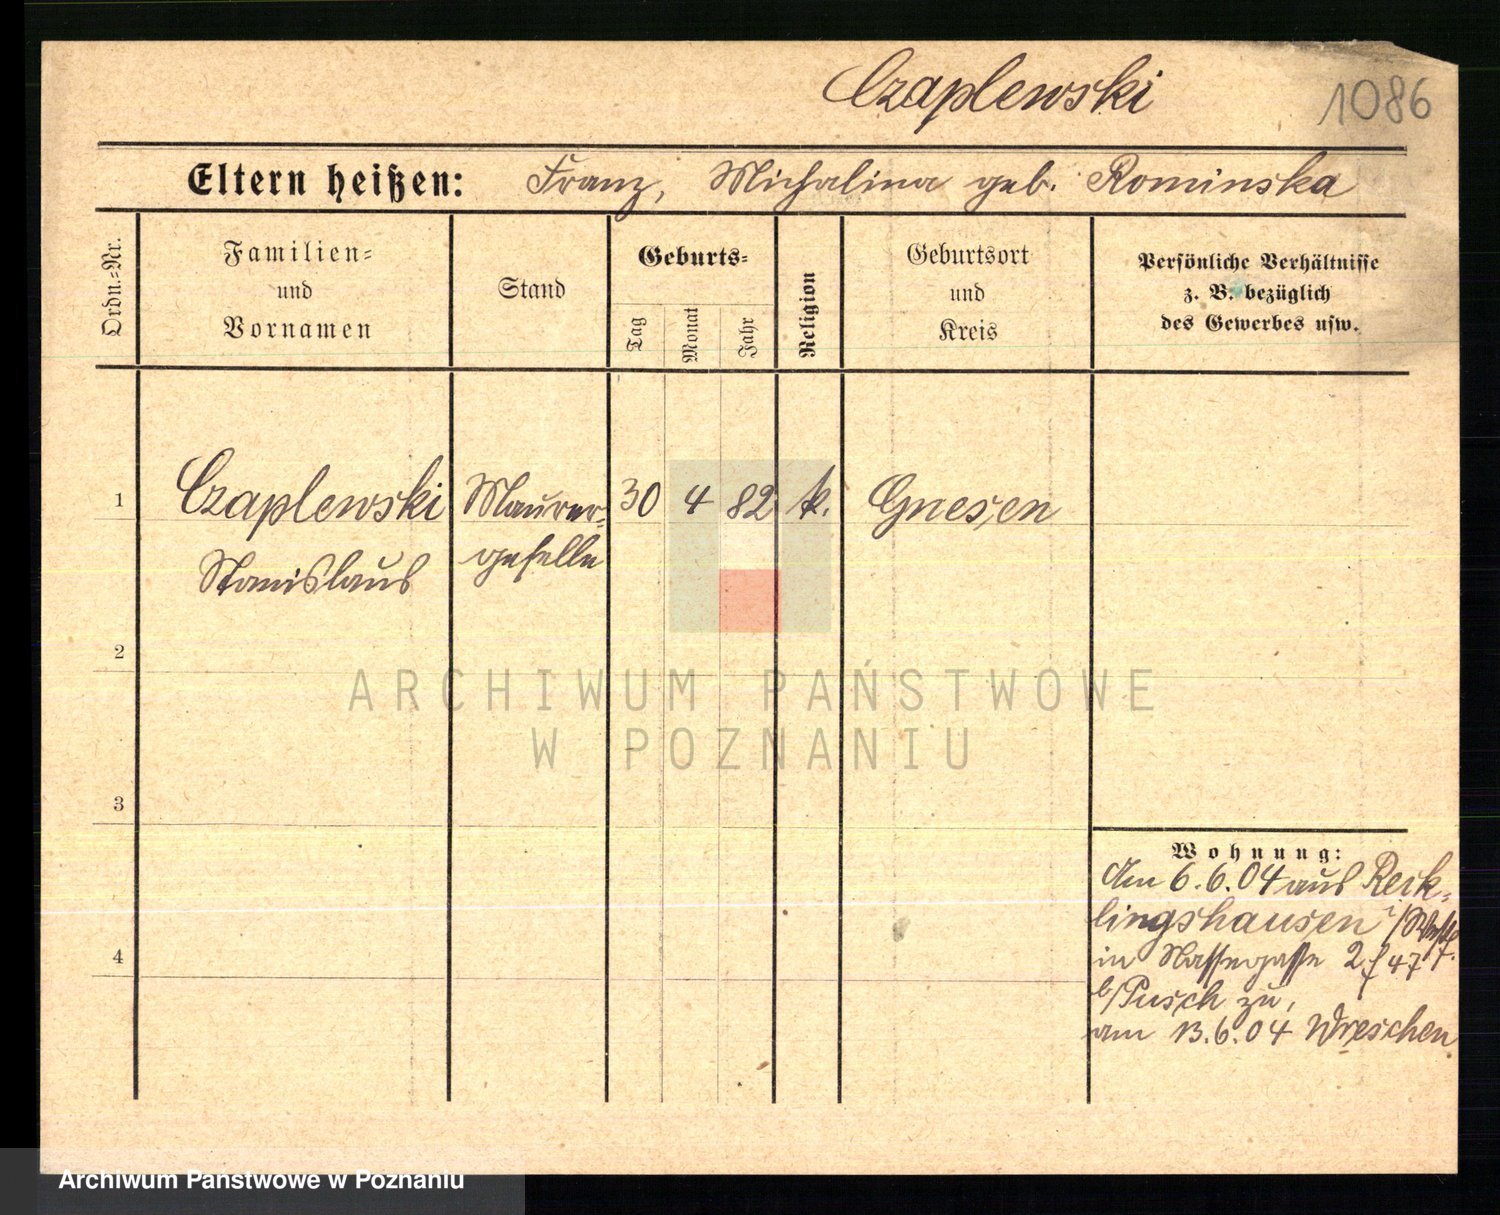 Czaplewski
1086
Eltern heißen: Franz, Michalina geb. Rominska
Ordn.-Nr.
Familien-
und
Vornamen
Stand
Geburts-
Tag
Monat
Jahr
Religion
Geburtsort
und
Kreis
Persönliche Verhältnisse
z. B. bezüglich
des Gewerbes usw.
1 Czaplewski Maurer- 30 4 82 k. Gnesen
Stanislaus geselle
2
3
4
ARCHIWUM PAŃSTWOWE
W POZNANIU
Wohnung:
Am 6.6.04 aus Reck-
lingshausen i/Westf.
in Nassegasse 2 f 477
b/Pusch zu,
am 13.6.04 Wreschen
Archiwum Państwowe w Poznaniu